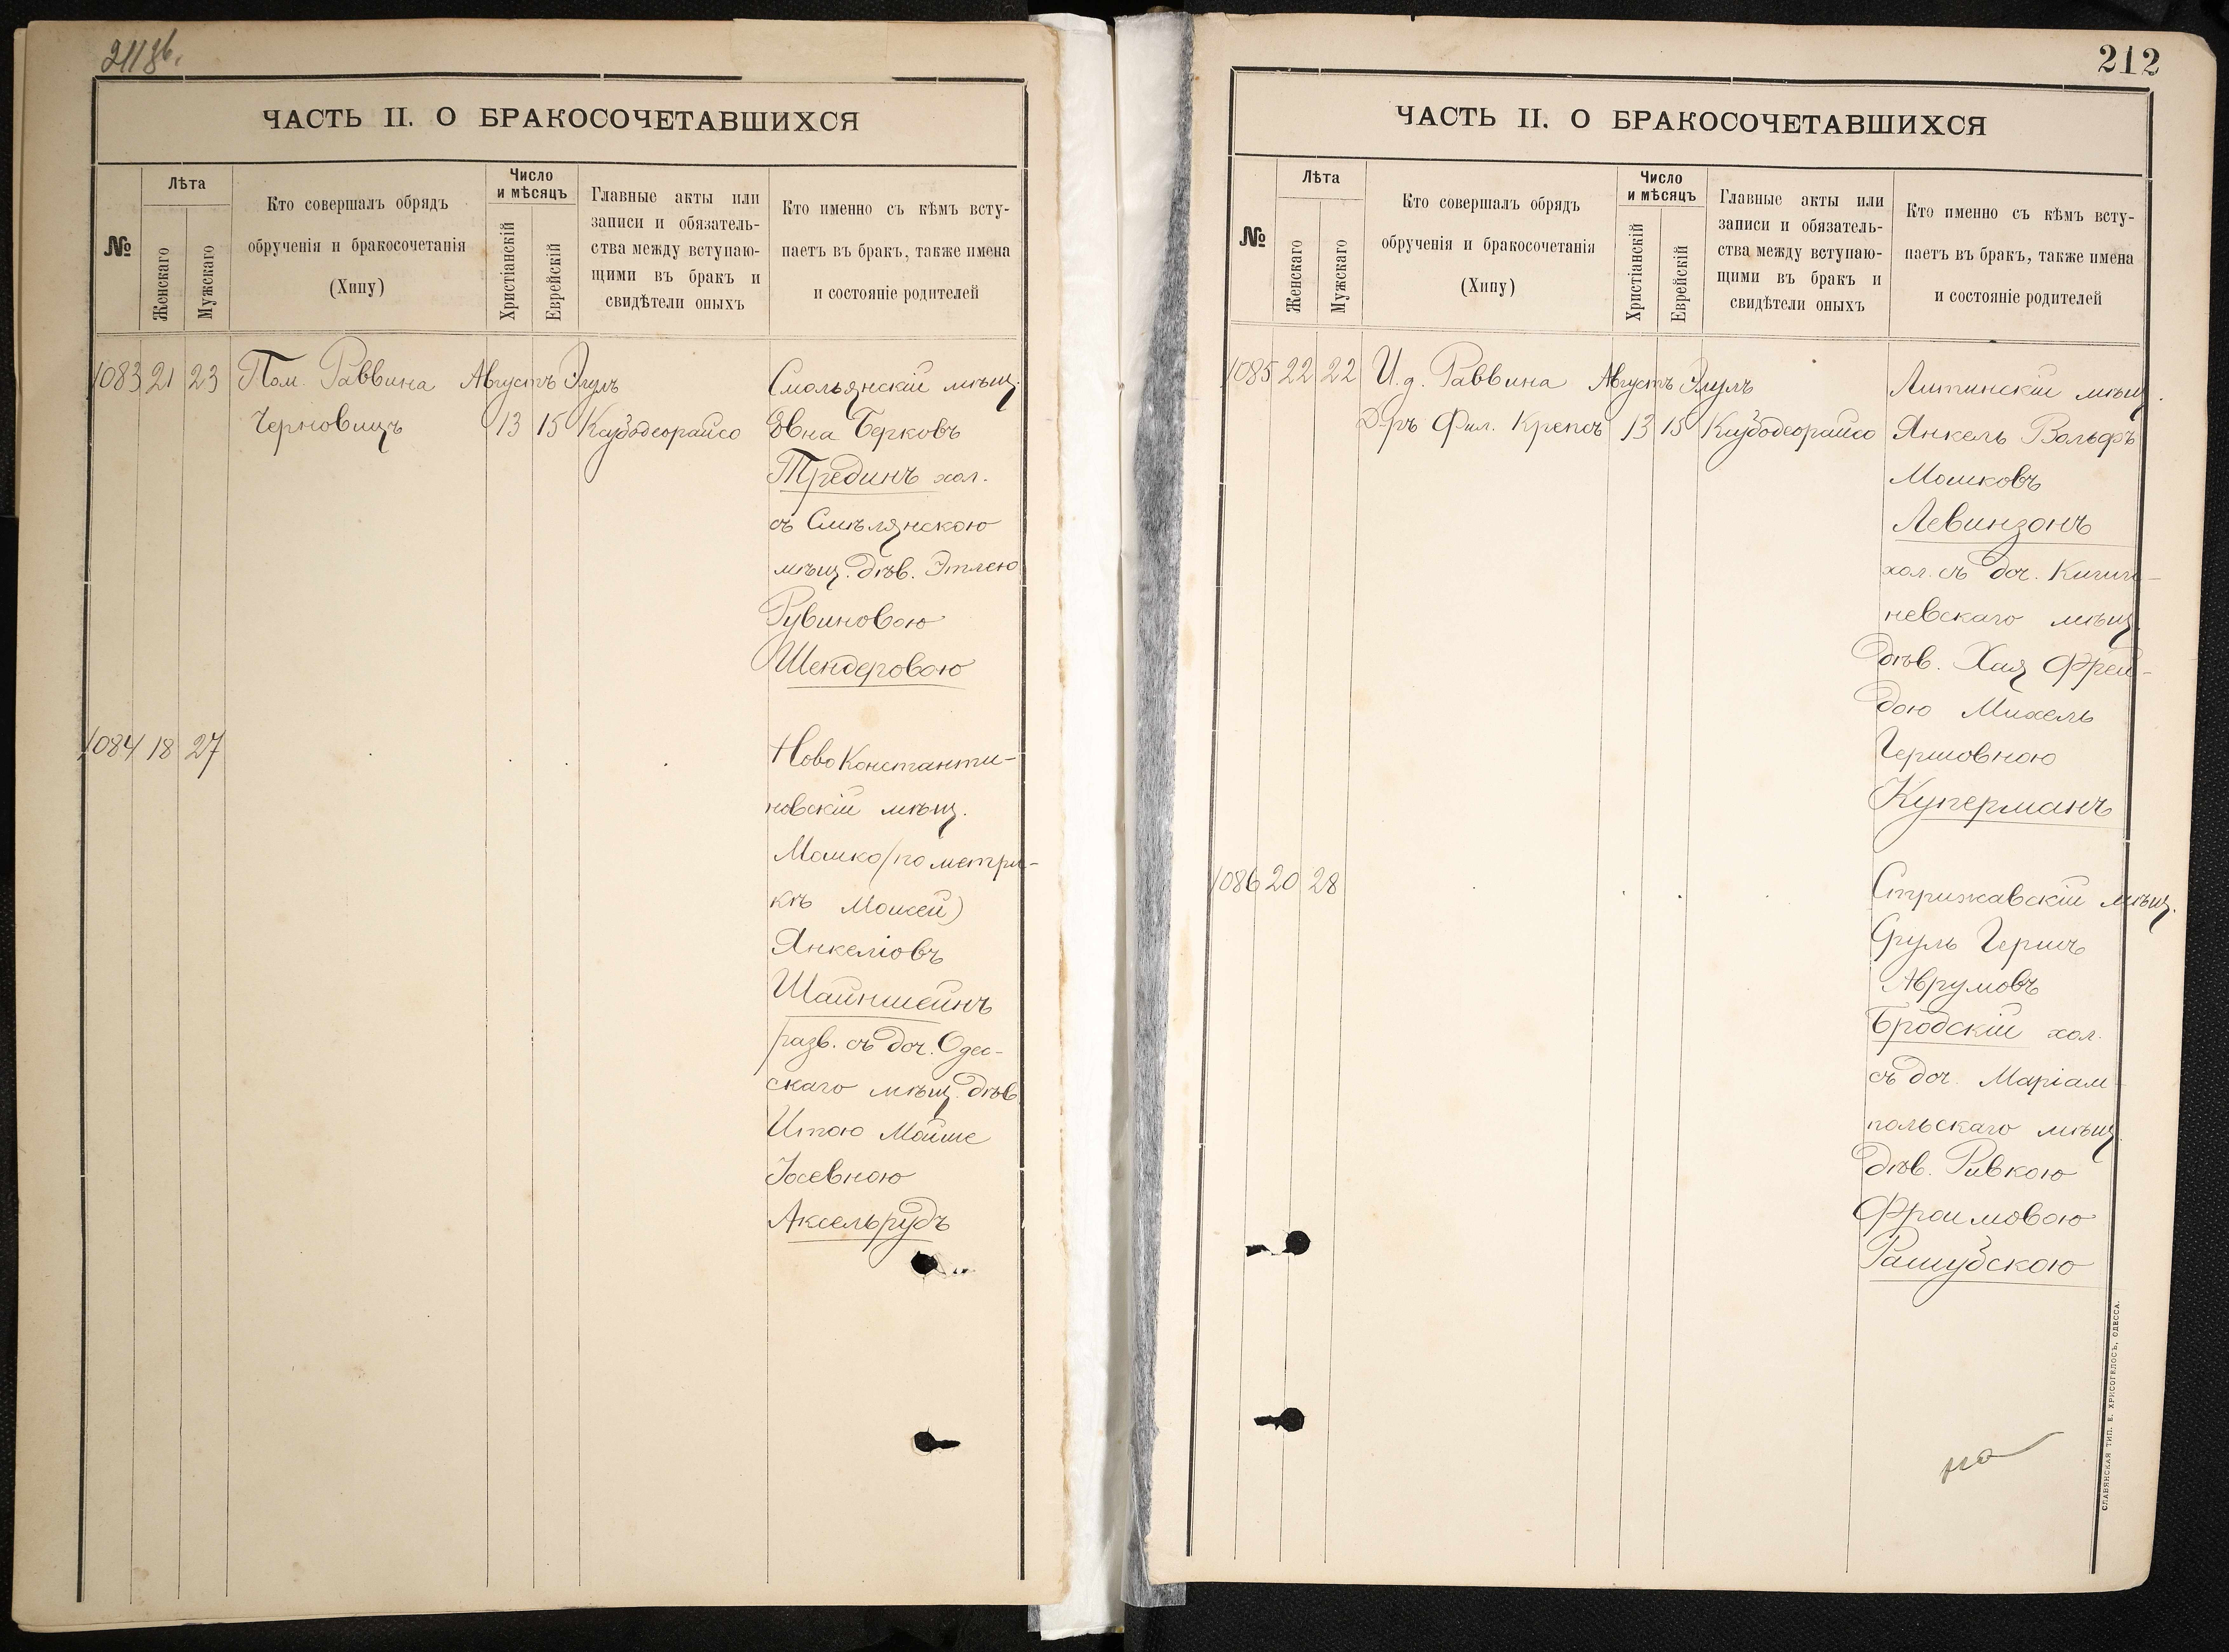 211 об.
ЧАСТЬ II. О БРАКОСОЧЕТАВШИХСЯ
№
Лѣта
Женскаго
Мужскаго
Кто совершалъ обрядъ
обрученія и бракосочетанія
(Хипу)
Число
и мѣсяцъ
Христіанскій
Еврейскій
Главные акты или
записи и обязатель-
ства между вступаю-
щими въ бракъ и
свидѣтели оныхъ
Кто именно съ кѣмъ всту-
паетъ въ бракъ, также имена
и состояніе родителей
1083 21 23 Пом. Раввина Августъ Элулъ Смольянскій мѣщ.
Черновицъ 13 15 Казбодеорайсо Эвна Берковъ
Трединъ хол.
съ Смѣлянскою
мѣщ. дѣв. Этлею
Рувиновою
Шендеровою
1084 18 27 Ново Константи-
новскій мѣщ.
Мошко (по метри-
кѣ Моисей)
Янкеліовъ
Шайншейнъ
разв. съ доч. Одес-
скаго мѣщ. дѣв.
Итою Мойше
Іосевною
Аксельрудъ
212
ЧАСТЬ II. О БРАКОСОЧЕТАВШИХСЯ
№
Лѣта
Женскаго
Мужскаго
Кто совершалъ обрядъ
обрученія и бракосочетанія
(Хипу)
Число
и мѣсяцъ
Христіанскій
Еврейскій
Главные акты или
записи и обязатель-
ства между вступаю-
щими въ бракъ и
свидѣтели оныхъ
Кто именно съ кѣмъ всту-
паетъ въ бракъ, также имена
и состояніе родителей
1085 22 22 И. д. Раввина Августъ Элулъ Литинскій мѣщ.
Д-ръ Фил. Крепсъ 13 15 Казбодеорайсо Янкель Вольфъ
Мошковъ
Левинзонъ
хол. съ доч. Киши-
невскаго мѣщ.
дѣв. Хая Фрей-
дою Михель
Гершовною
Куперманъ
1086 20 28 Стрижавскій мѣщ.
Сруль Гершъ
Аврумовъ
Бродскій хол.
съ доч. Маріам-
польскаго мѣщ.
дѣв. Ривкою
Фроимовою
Рашубскою
СЛАВЯНСКАЯ ТИП. Е. ХРИСОГЕЛОСЪ, ОДЕССА.